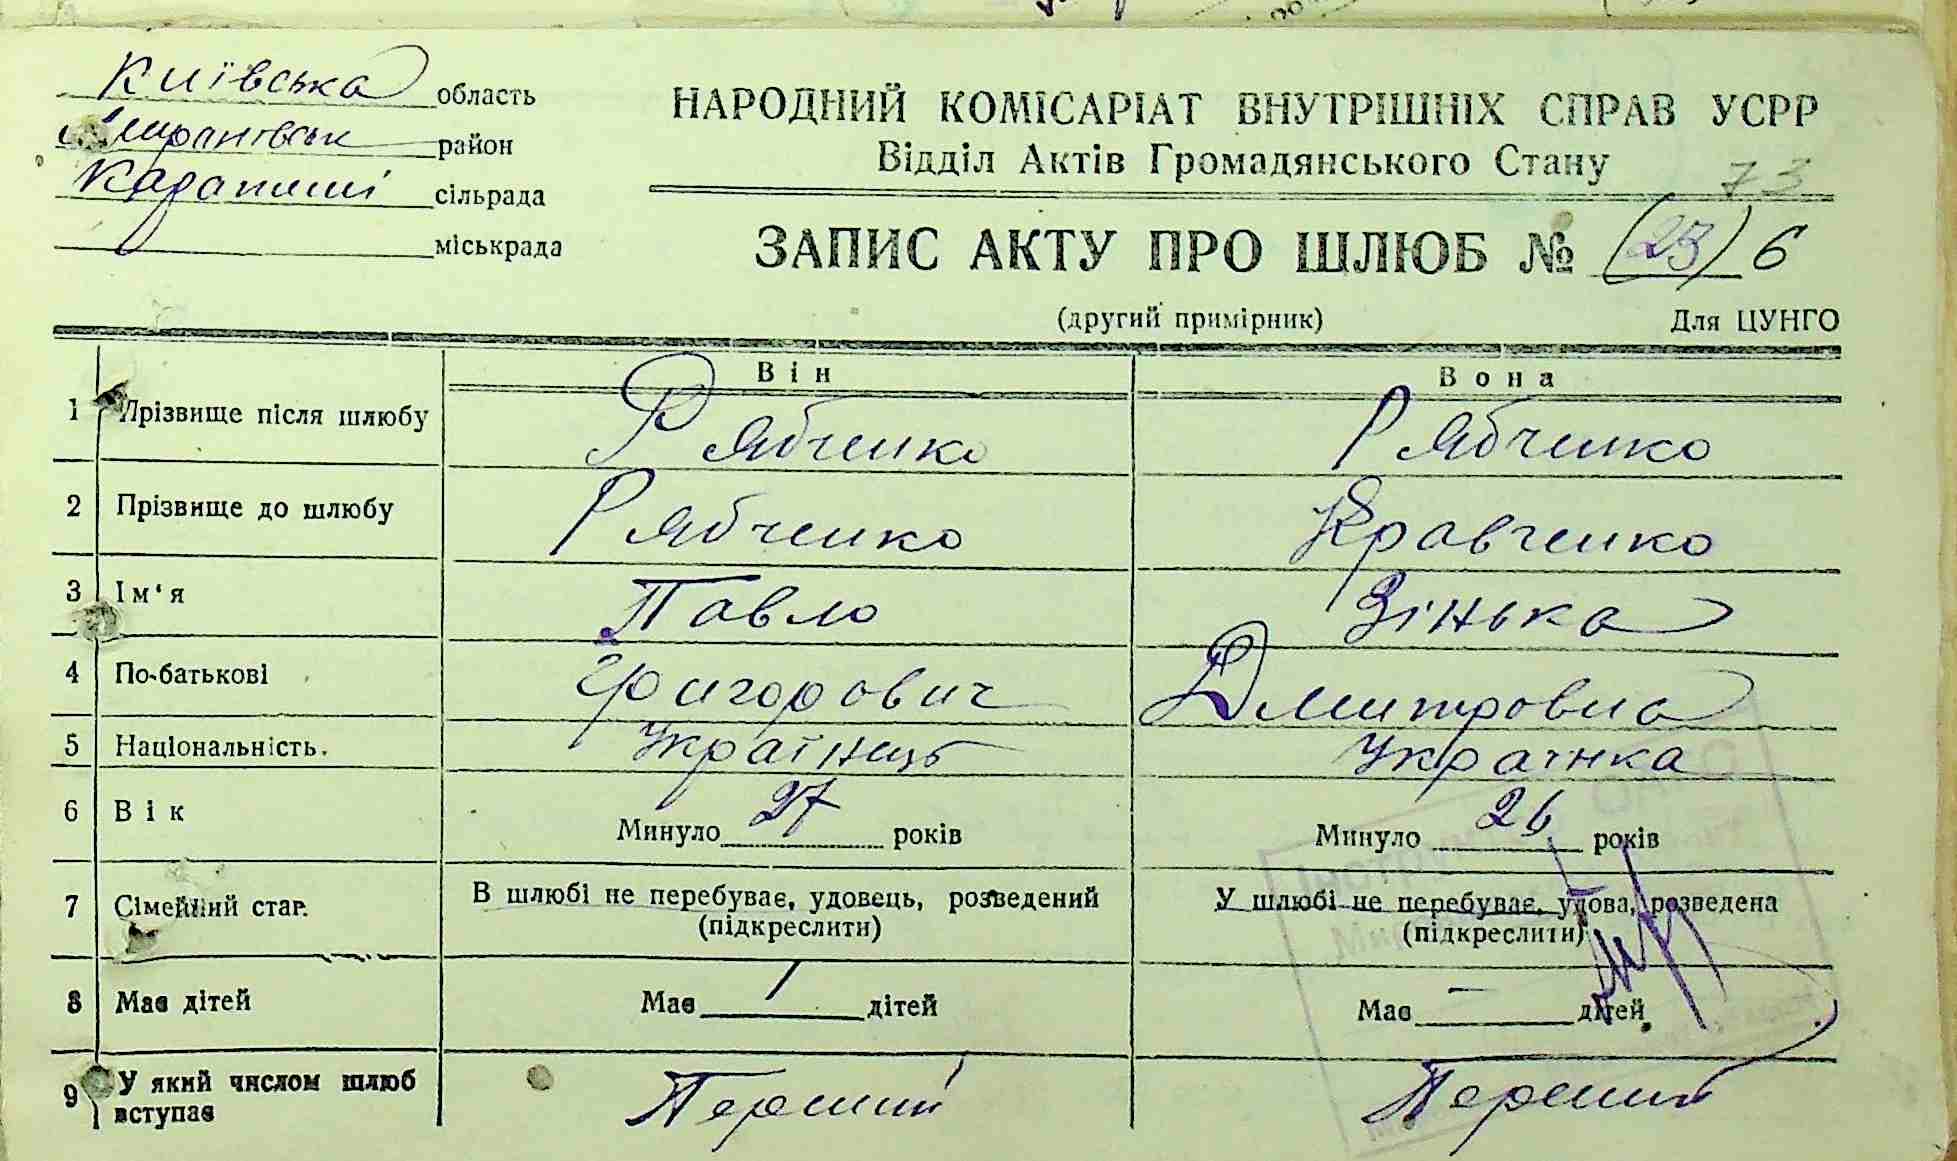 Київська область
Миронівськ район
Карапиші сільрада
міськрада
НАРОДНИЙ КОМІСАРІАТ ВНУТРІШНІХ СПРАВ УСРР
Відділ Актів Громадянського Стану
73
ЗАПИС АКТУ ПРО ШЛЮБ № (23) 6
(другий примірник) Для ЦУНГО
Він Вона
1 Прізвище після шлюбу Рябченко Рябченко
2 Прізвище до шлюбу Рябченко Кравченко
3 Ім'я Павло Зінька
4 По-батькові Григорович Дмитровна
5 Національність. Українець Українка
6 Вік Минуло 27 років Минуло 26 років
7 Сімейний стан. В шлюбі не перебуває, удовець, розведений (підкреслити) У шлюбі не перебуває, удова, розведена (підкреслити)
8 Має дітей Має / дітей Має — дітей
9 У який числом шлюб вступає Перший Перший